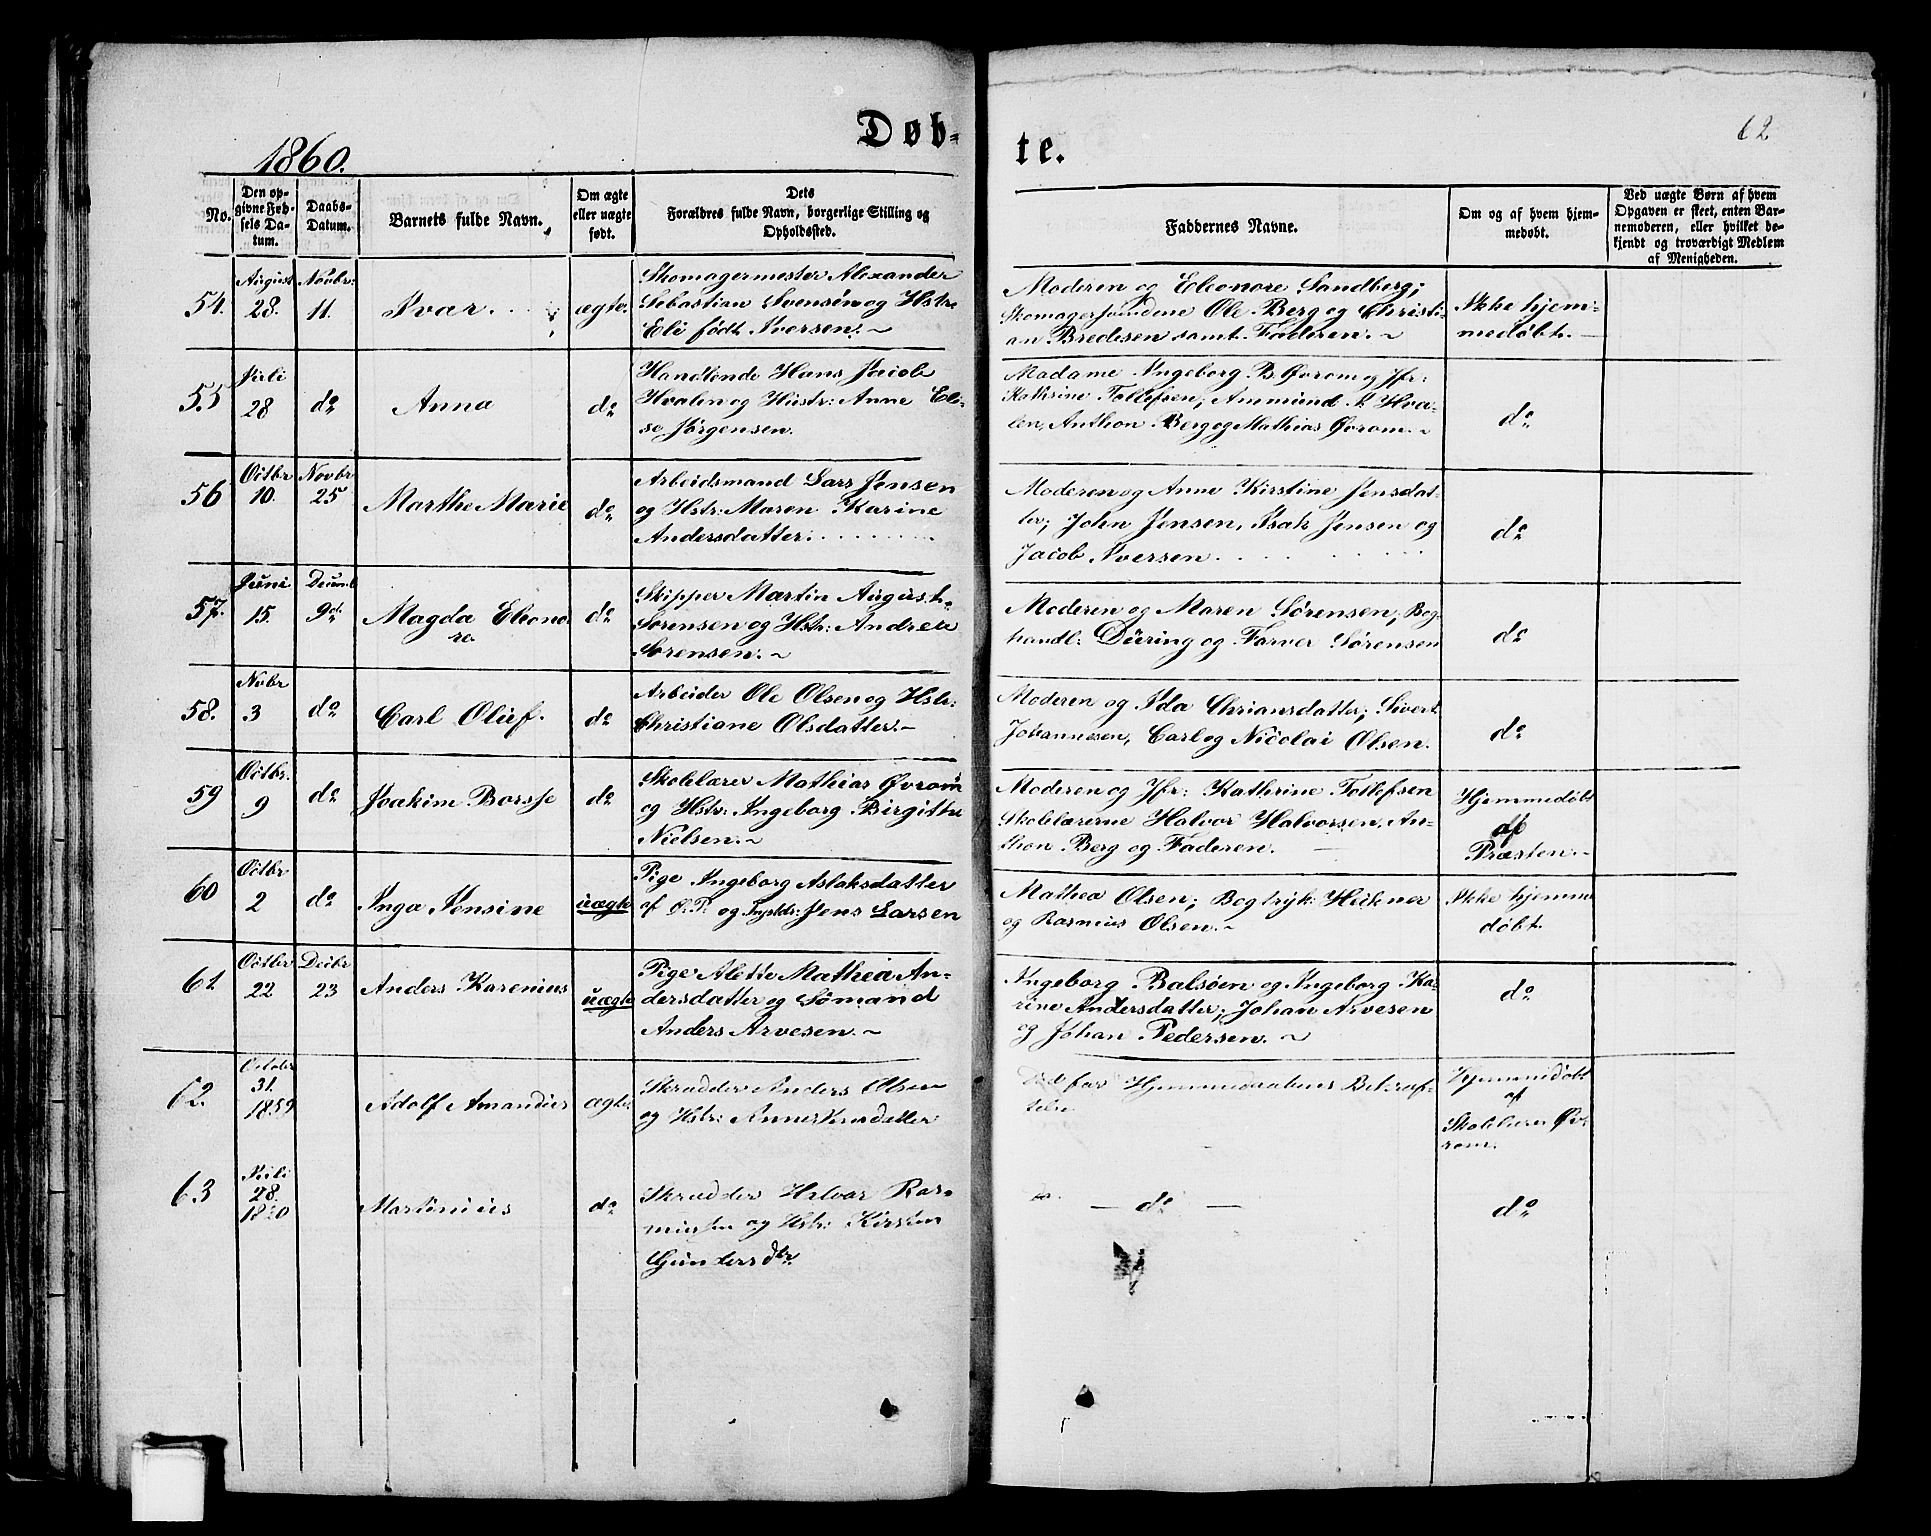 1860.
Døb-
te.
62
No.
Den op-
givne Fød-
sels Da-
tum.
Daabs-
Datum.
Barnets fulde Navn.
Om ægte
eller uægte
født.
Dets
Forældres fulde Navn, borgerlige Stilling og
Opholdssted.
Faddernes Navne.
Om og af hvem hjem-
medøbt.
Ved uægte Børn af hvem
Opgaven er skeet, enten Bar-
nemoderen, eller hvilket be-
kjendt og troværdigt Medlem
af Menigheden.
54.
August
28.
Novbr:
11.
Ivar.
ægte.
Skomagermester Alexander
Sebastian Svensen og Hstr:
Eli født Iversen. ~
Moderen og Eleonore Sandberg;
Skomagersvendene Ole Berg og Christi-
an Bredesen samt Faderen. ~
Ikke hjem-
medøbt.
55
Juli
28
do
Anna
do
Handlende Hans Jacob
Hvalen og Hustr: Anne Eli-
se Jørgensen.
Madame Ingeborg B. Øvrom og Jfr:
Kathrine Tollefsen; Ammund A. Hva-
len, Anthon Berg og Mathias Øvrom. ~
do
56
Octbr
10.
Novbr
25
Marthe Marie
do
Arbeidsmand Lars Jensen
og Hstr: Maren Karine
Andersdatter.
Moderen og Anne Kirstine Jensdat-
ter; John Jensen, Isak Jensen og
Jacob Iversen.
do
57.
Juni
15.
Decemb
9de
Magda Eleono-
ra
do
Skipper Martin August
Sørensen og Hstr: Andrea
Sørensen. ~
Moderen og Maren Sørensen; Bog-
handl: Düring og Farver Sørensen
do
58.
Novbr
3
do
Carl Oluf.
do
Arbeider Ole Olsen og Hstr:
Christiane Olsdatter. -
Moderen og Ida Chriansdatter; Sivert
Johannesen, Carl og Nicolai Olsen.
do
59
Octbr.
9
do
Joakim Borsse
do
Skolelærer Mathias Øvrom
og Hstr: Ingeborg Birgitte
Nielsen. ~
Moderen og Jfr: Kathrine Tollefsen
Skolelærerne Halvor Halvorsen, An-
thon Berg og Faderen.
Hjemmedøbt
af
Præsten. -
60
Octbr
2
do
Inga Jensine
uægte
Pige Ingeborg Aslaksdatter
af Ø.R. og Jens Larsen
Mathea Olsen; Bogtryk: Heckner
og Rasmus Olsen. ~
Ikke hjemme
døbt.
61
Octbr
22
Decbr
23
Anders Karenius
uægte
Pige Alette Mathea An-
dersdatter og Sømand
Anders Arvesen. ~
Ingeborg Balsøen og Ingeborg Ka-
rine Andersdatter; Johan Arvesen
og Johan Pedersen. ~
do
62.
October
31.
1859
Adolf Amandus
ægte
Skrædder Anders Olsen
og Hstr: Anne
Død før Hjemmedaabens Bekræf-
telse
Hjemmedøbt
af
Skolelærer Øv-
rom.
63
Juli
28.
1860
Martinius
do
Skrædder Halvor Ras-
mussen og Hstr: Kirsten
Gundersdtr.
— do —
do